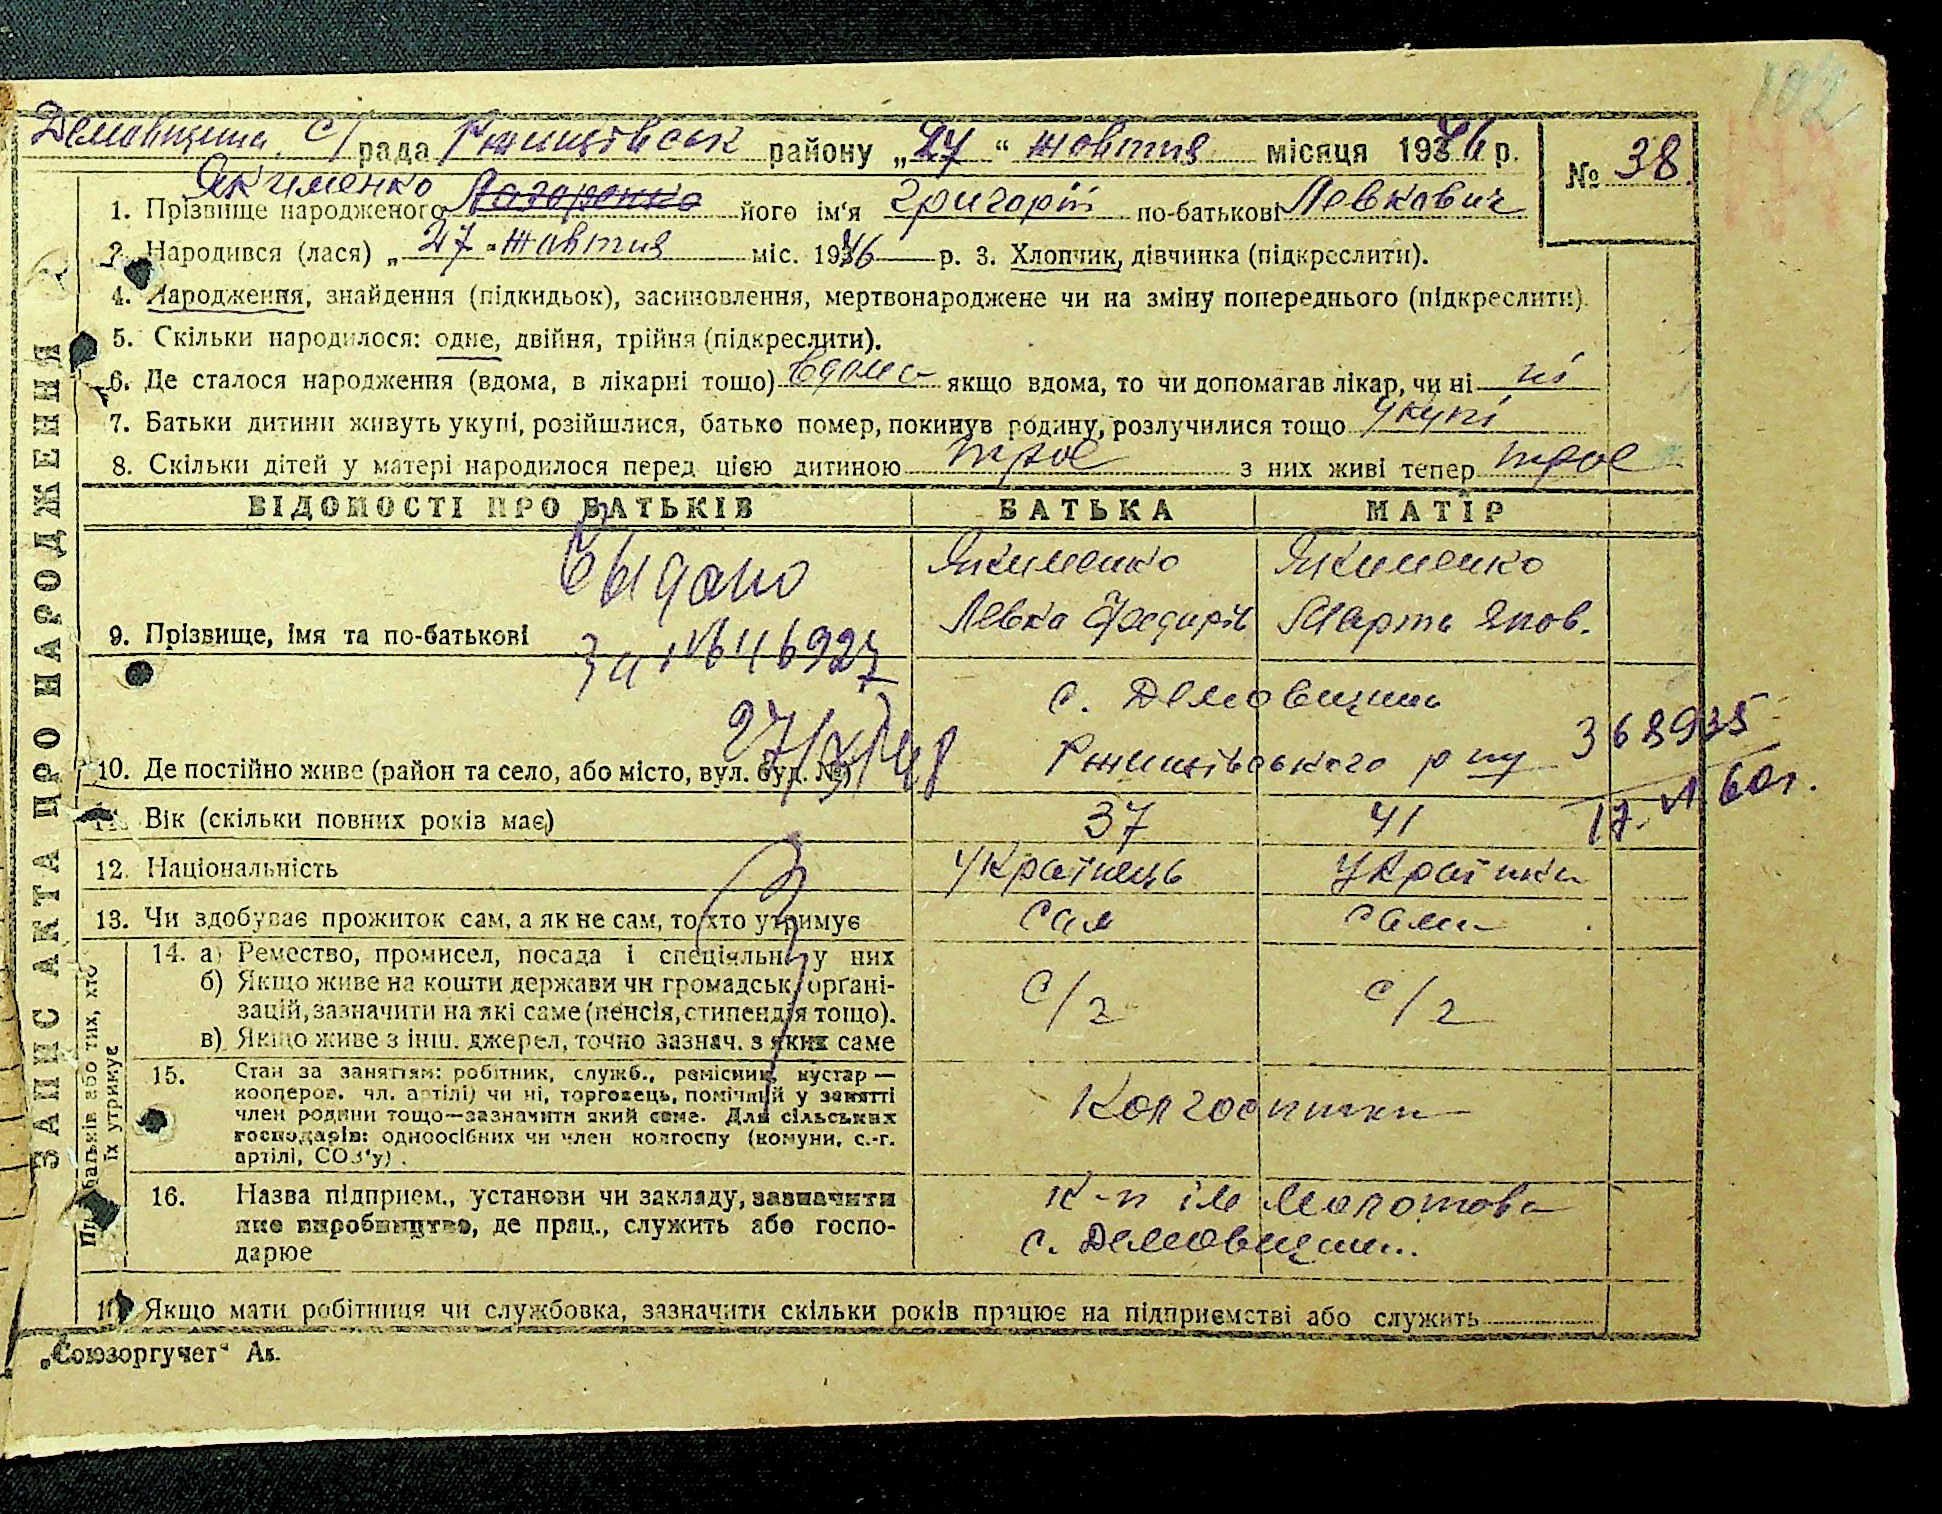 102
Демовщина с/рада Ржищівськ району „27“ жовтня місяця 1946 р.
№ 38.
Якименко
1. Прізвище народженого його ім'я Григорій по-батькові Левкович
2. Народився (лася) „27" жовтня міс. 1946 р. 3. Хлопчик, дівчинка (підкреслити).
4. Народження, знайдення (підкидьок), засиновлення, мертвонароджене чи на зміну попереднього (підкреслити).
5. Скільки народилося: одне, двійня, трійня (підкреслити).
6. Де сталося народження (вдома, в лікарні тощо) вдома якщо вдома, то чи допомагав лікар, чи ні ні
7. Батьки дитини живуть укупі, розійшлися, батько помер, покинув родину, розлучилися тощо укупі
8. Скільки дітей у матері народилося перед цією дитиною троє з них живі тепер троє
ЗАПИС АКТА ПРО НАРОДЖЕННЯ
ВІДОМОСТІ ПРО БАТЬКІВ БАТЬКА МАТІР
Выдано
Якименко Якименко
Левка Федорів Марта Яков.
9. Прізвище, імя та по-батькові
За №646927
с. Демовщина
27/X/48
Ржищівського р-ну
368935
10. Де постійно живе (район та село, або місто, вул. буд. №)
17. VI 60г.
11. Вік (скільки повних років має) 37 41
12. Національність українець українка
13. Чи здобуває прожиток сам, а як не сам, то хто утримує сам сама
батьків або тих, хто їх утримує
14. а) Ремество, промисел, посада і спеціяльн. у них
б) Якщо живе на кошти держави чи громадськ. організацій, зазначити на які саме (пенсія, стипендія тощо). с/г с/г
в) Якщо живе з інш. джерел, точно зазнач. з яких саме
15. Стан за заняттям: робітник, служб., ремісник, кустар—
кооперов. чл. артілі) чи ні, торговець, помічний у занятті
член родини тощо—зазначити який саме. Для сільських
господарів: одноосібних чи член колгоспу (комуни, с.-г.
артілі, СОЗ'у).
Колгоспники
16. Назва підприєм., установи чи закладу, зазначити
яке виробництво, де прац., служить або господарює
к-п ім Молотова
с. Демовщина.
17. Якщо мати робітниця чи службовка, зазначити скільки років працює на підприємстві або служить
„Союзоргучет" Ак.